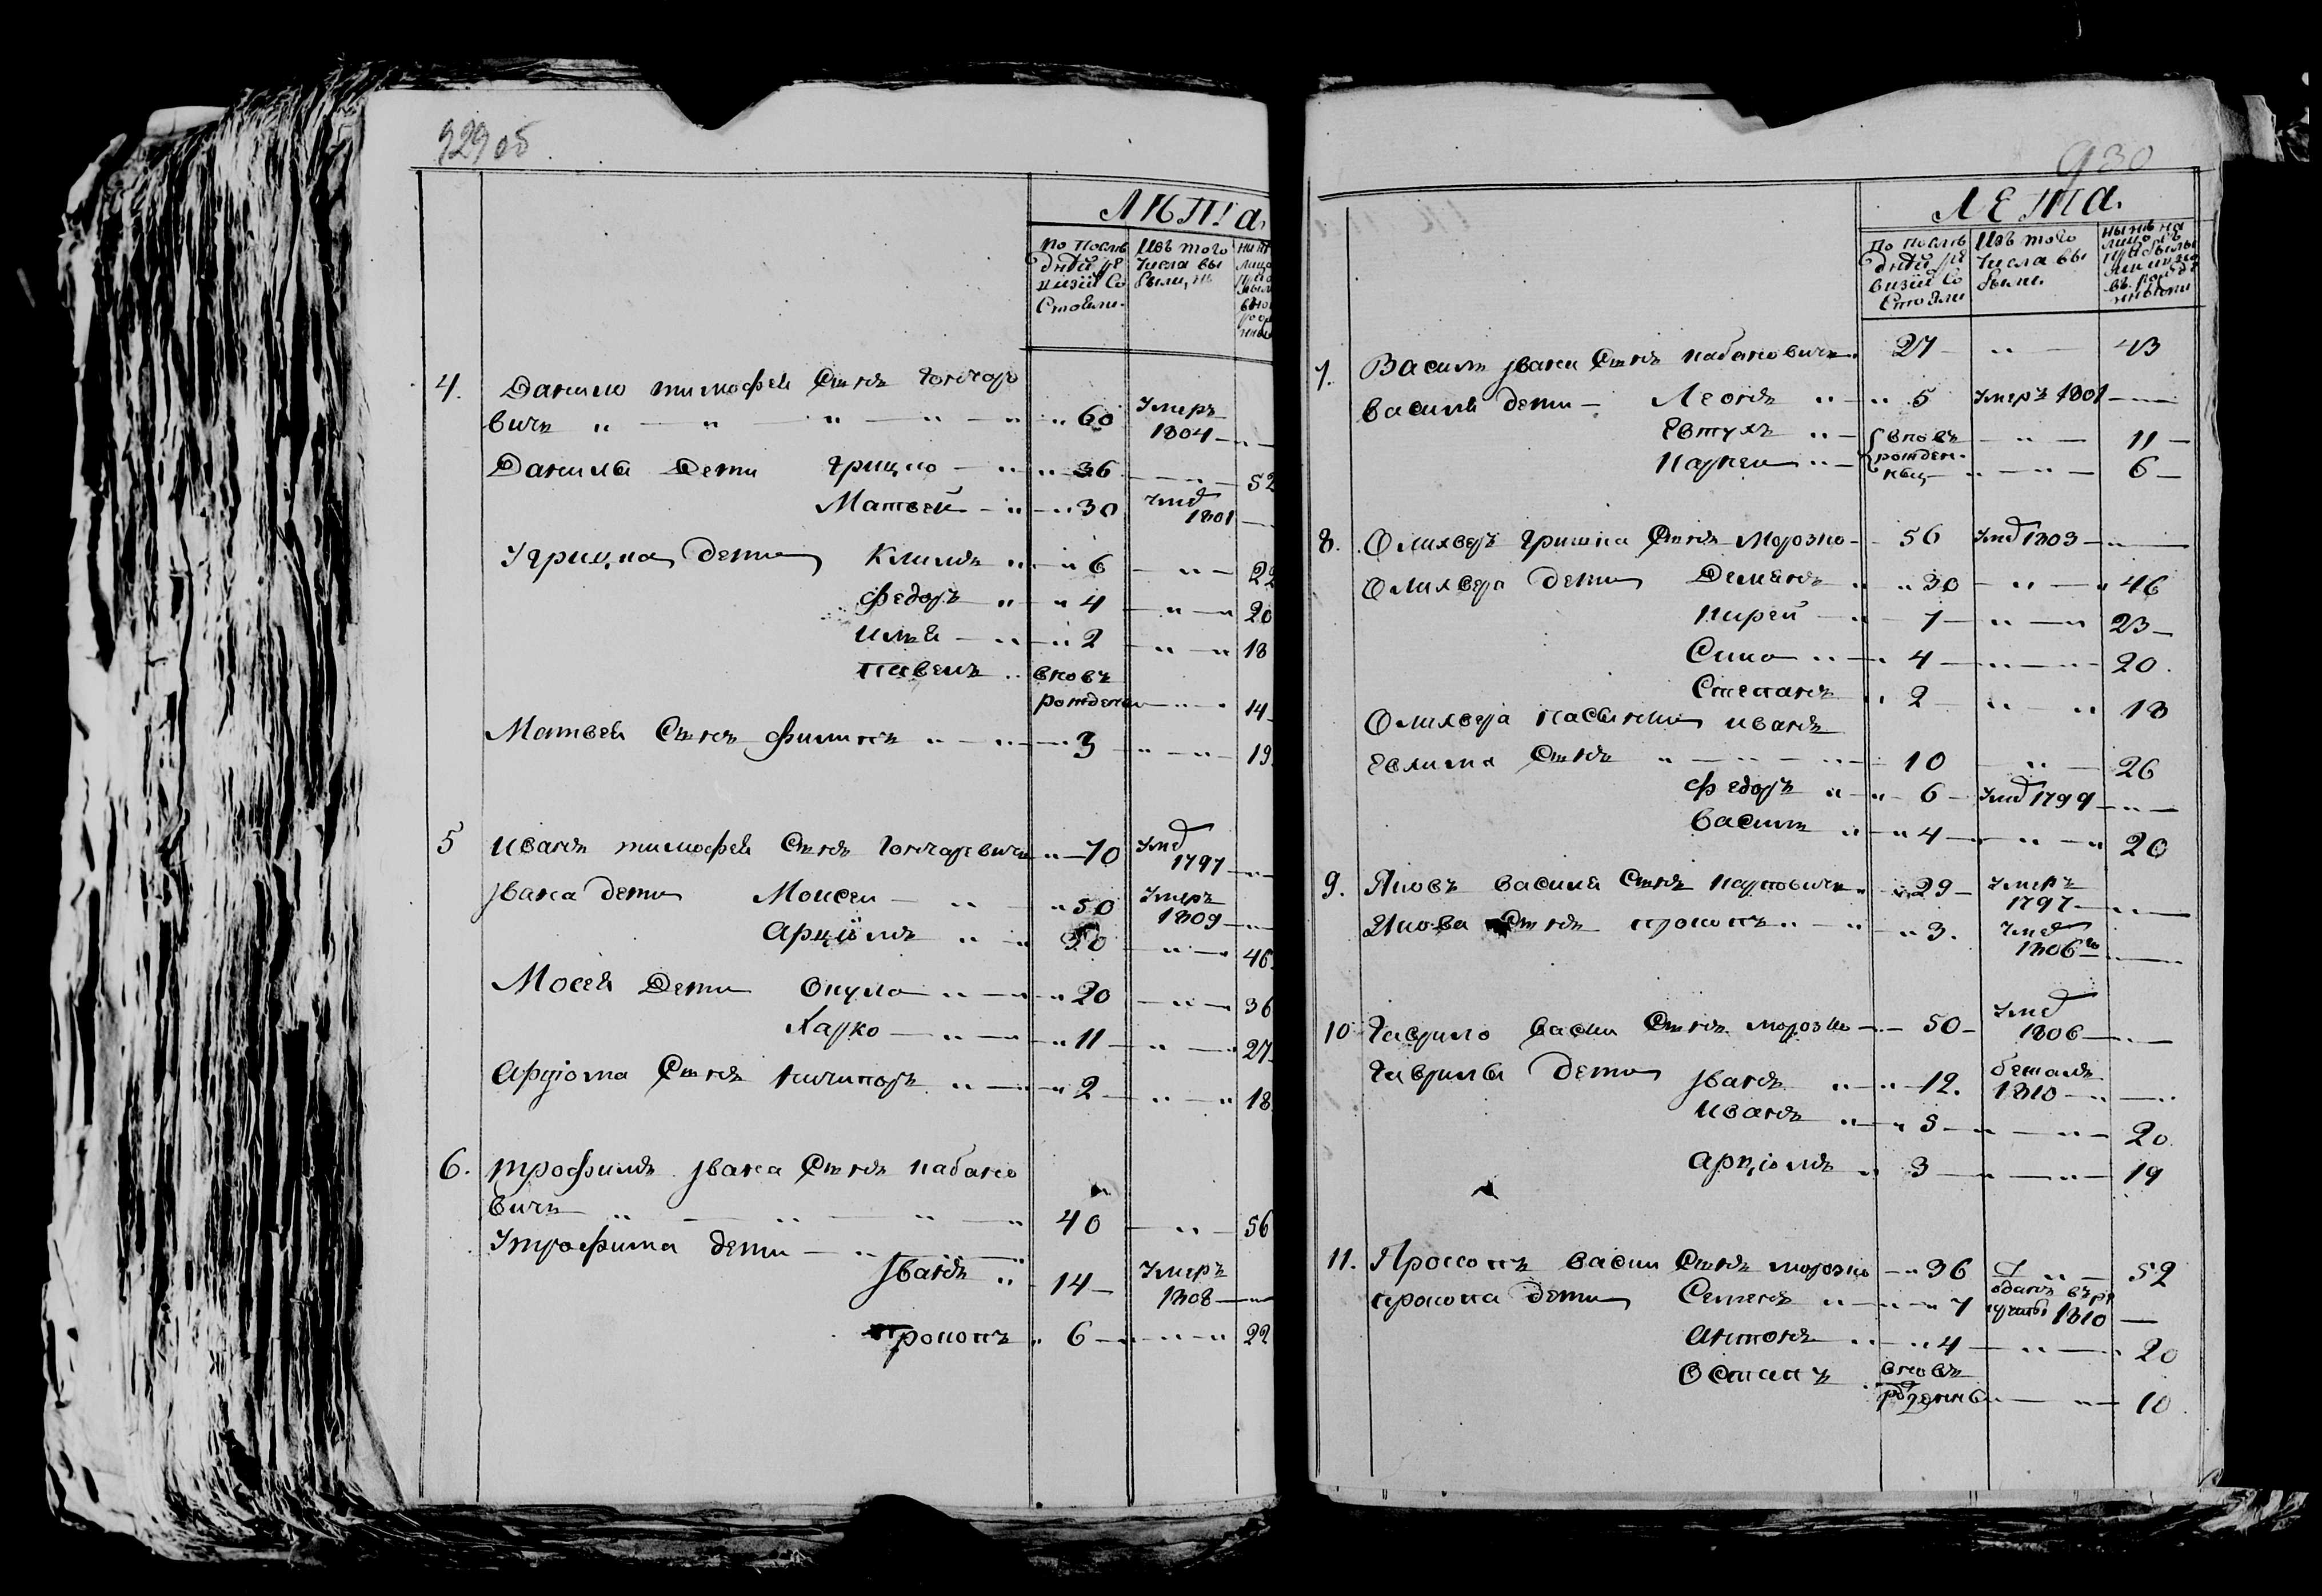 929 об
ЛИТ!а.
По послѣ
дней ре
визiи Со
Стояли.
Изъ того
числа вы
были,
4. Данило тимофея Сынъ Гончаро
вичъ 60 Умеръ 1804
Данилы Дети Грицко 36 52
Матвей 30 умд 1801
У грицка дети Климъ 6 22
Федоръ 4 20
илья 2 18
павелъ вновь
рожденъ 14
Матвея Сынъ филипъ 3 19
5 иванъ тимофея Сынъ Гончаревичъ 70 Умд 1797
Jвана дети Моисеи 50 Умеръ 1809
Арцiомъ 30 46
Мосея Дети Окуло 20 36
Харко 11 27
Арцiома Сынъ никипоръ 2 18
6. трофимъ Jвана Сынъ кабано
вичъ 40 56
У трофима дети
Jванъ 14 Умеръ 1808
прокопъ 6 22
930
ЛЕТА.
По послѣ
дней ре
визiи Со
Стояли
Изъ того
числа вы
были.
7. Василь Jвана Сынъ кабановичъ 27 43
Василя дети Леонъ 5 Умеръ 1801
Евтухъ вновь 11
Карнеи рожден
ныи 6
8. Олихверъ Гришка Сынъ Морозко 56 Умд 1803
Олихвера дети Демянъ 30 46
Кирей 7 23
Сико 4 20
Степанъ 2 18
Олихвера пасынки иванъ
Евлима Сынъ 10 26
Федоръ 6 Умд 1799
Василь 4 20
9. Яковъ Василя Сынъ карповичъ 29 Умеръ 1797
Якова Сынъ прокопъ 3. Умд 1806го
10 Гаврило Васи Сынъ морозко 50 Умд 1806
Гаврилы дети Jванъ 12. бежалъ 1810
иванъ 5 20
Арцiомъ 3 19
11. Прокопъ Васи Сынъ морозко 36 52
прокопа дети Семенъ 7 оданъ въ ре
круты 1810
Антонъ 4 20
Остапъ вновь
рожденны 10